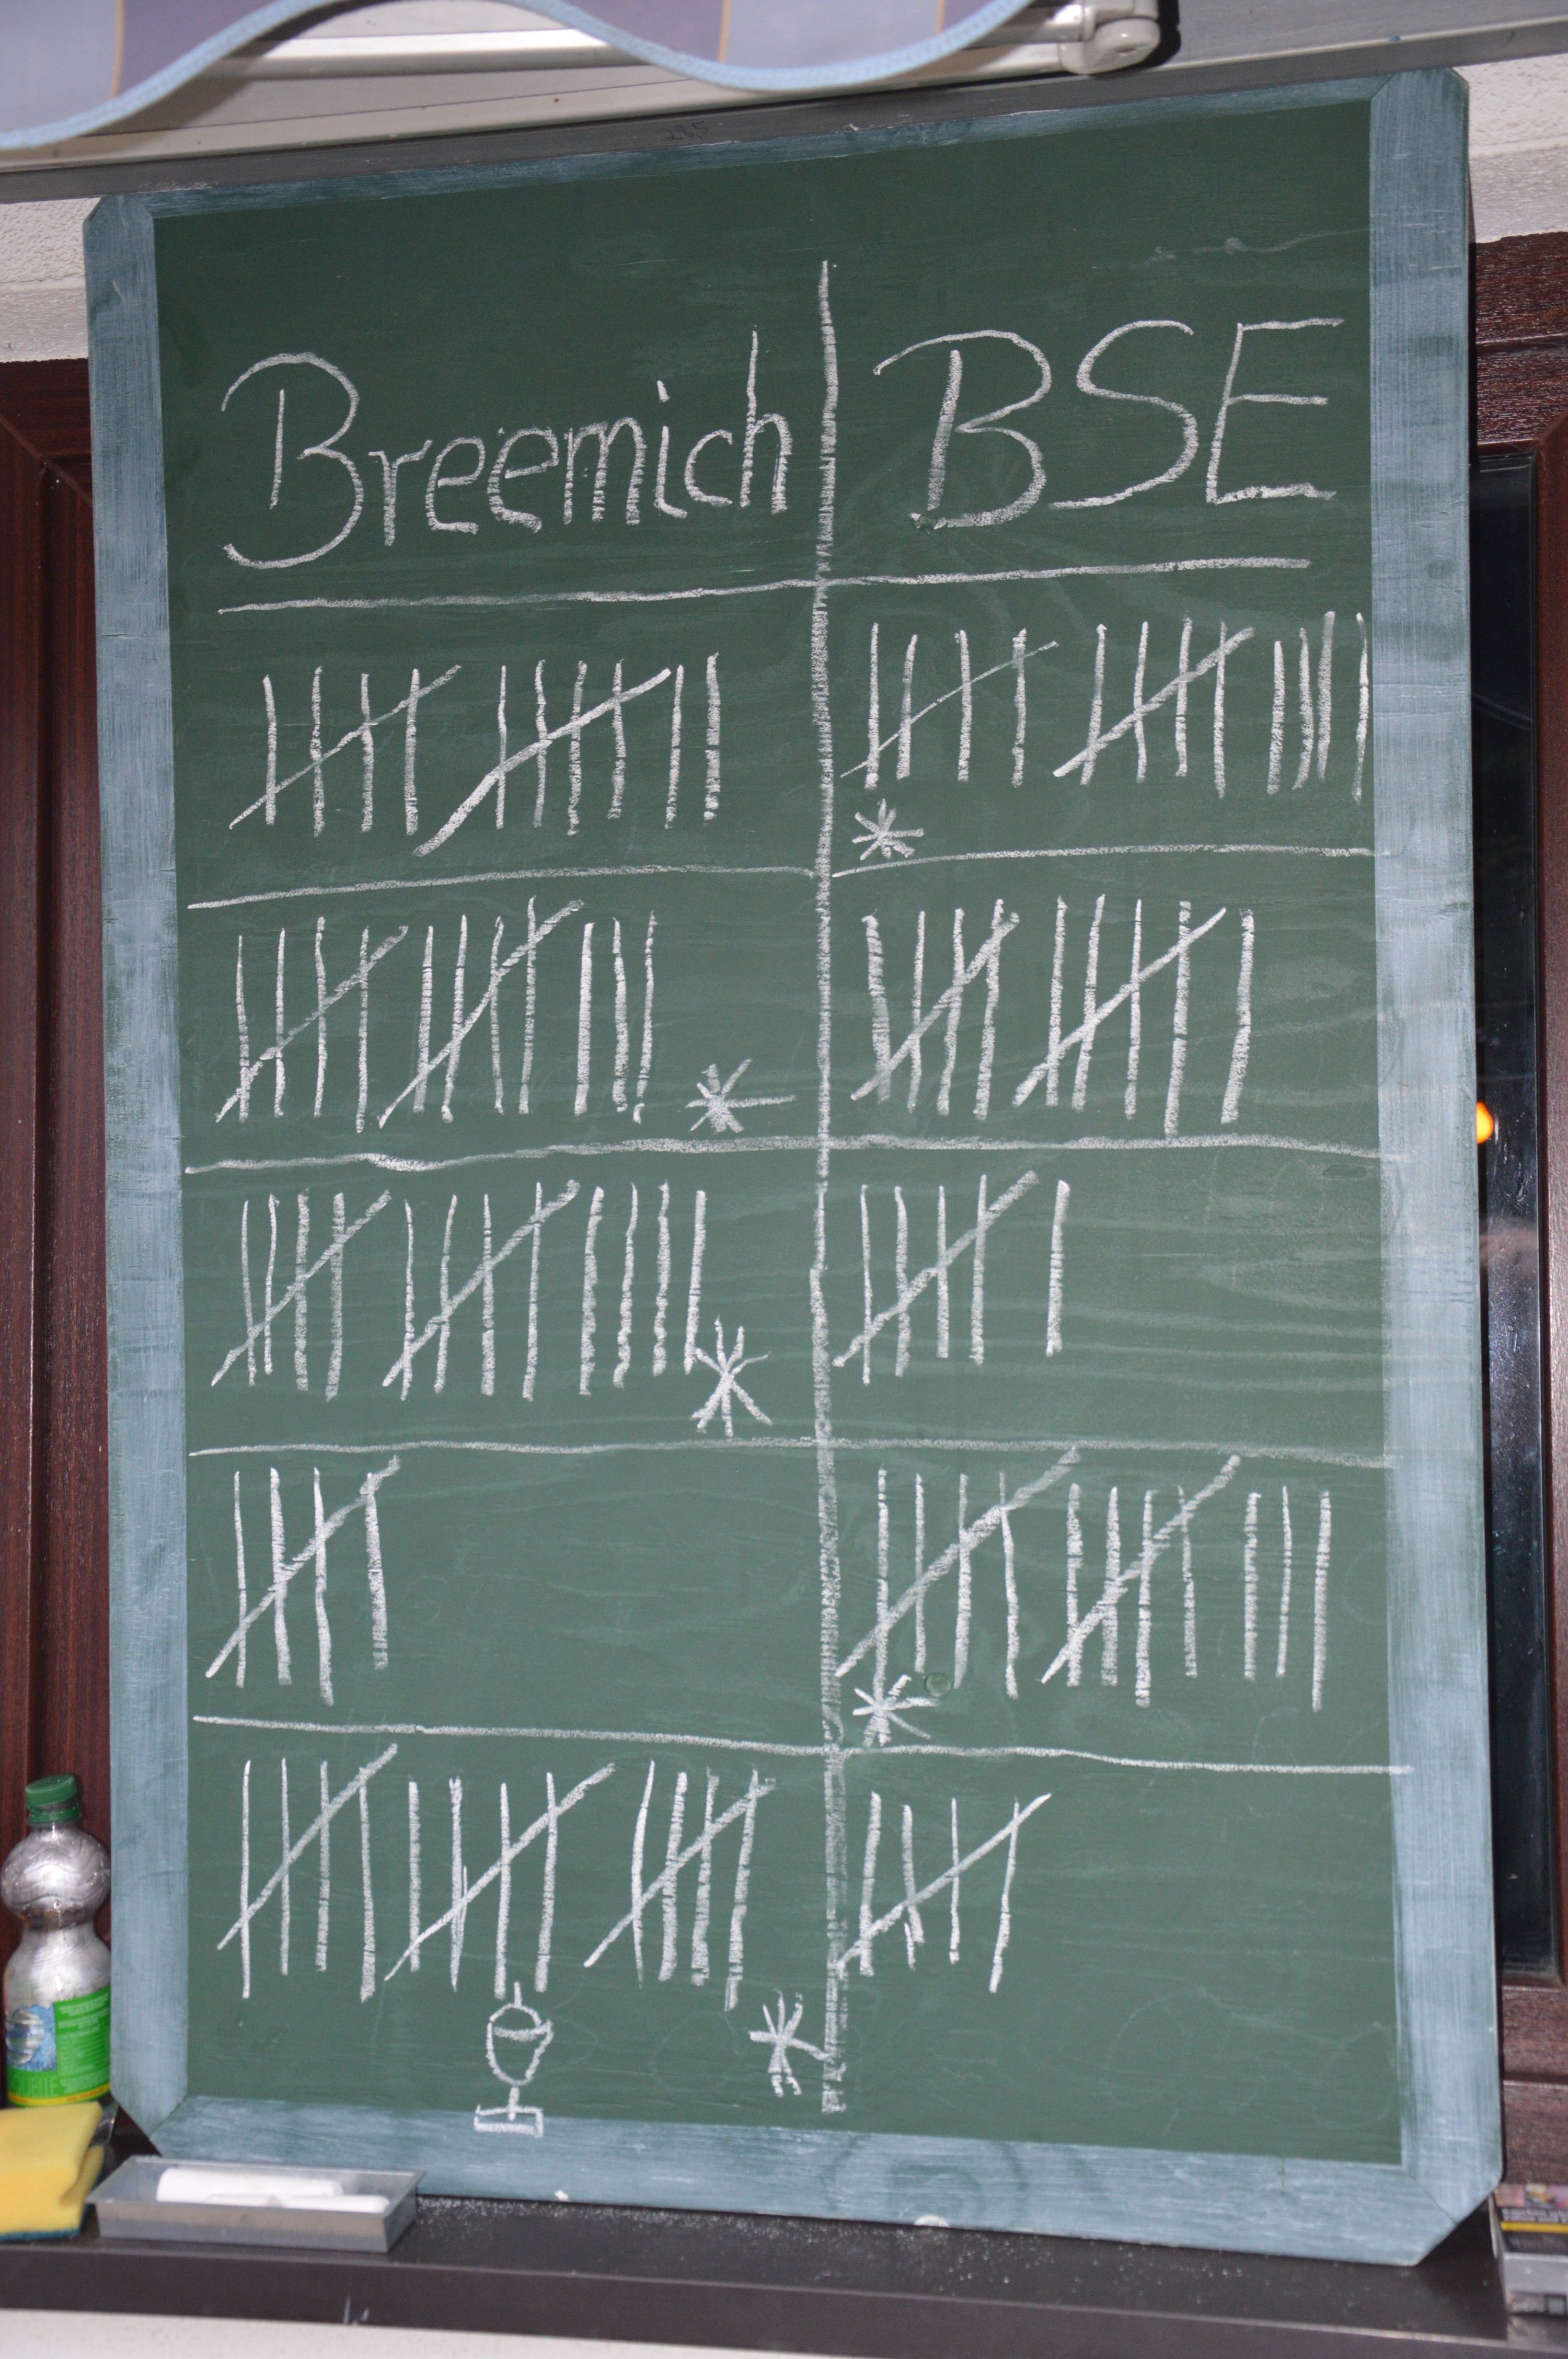 Breemich BSE